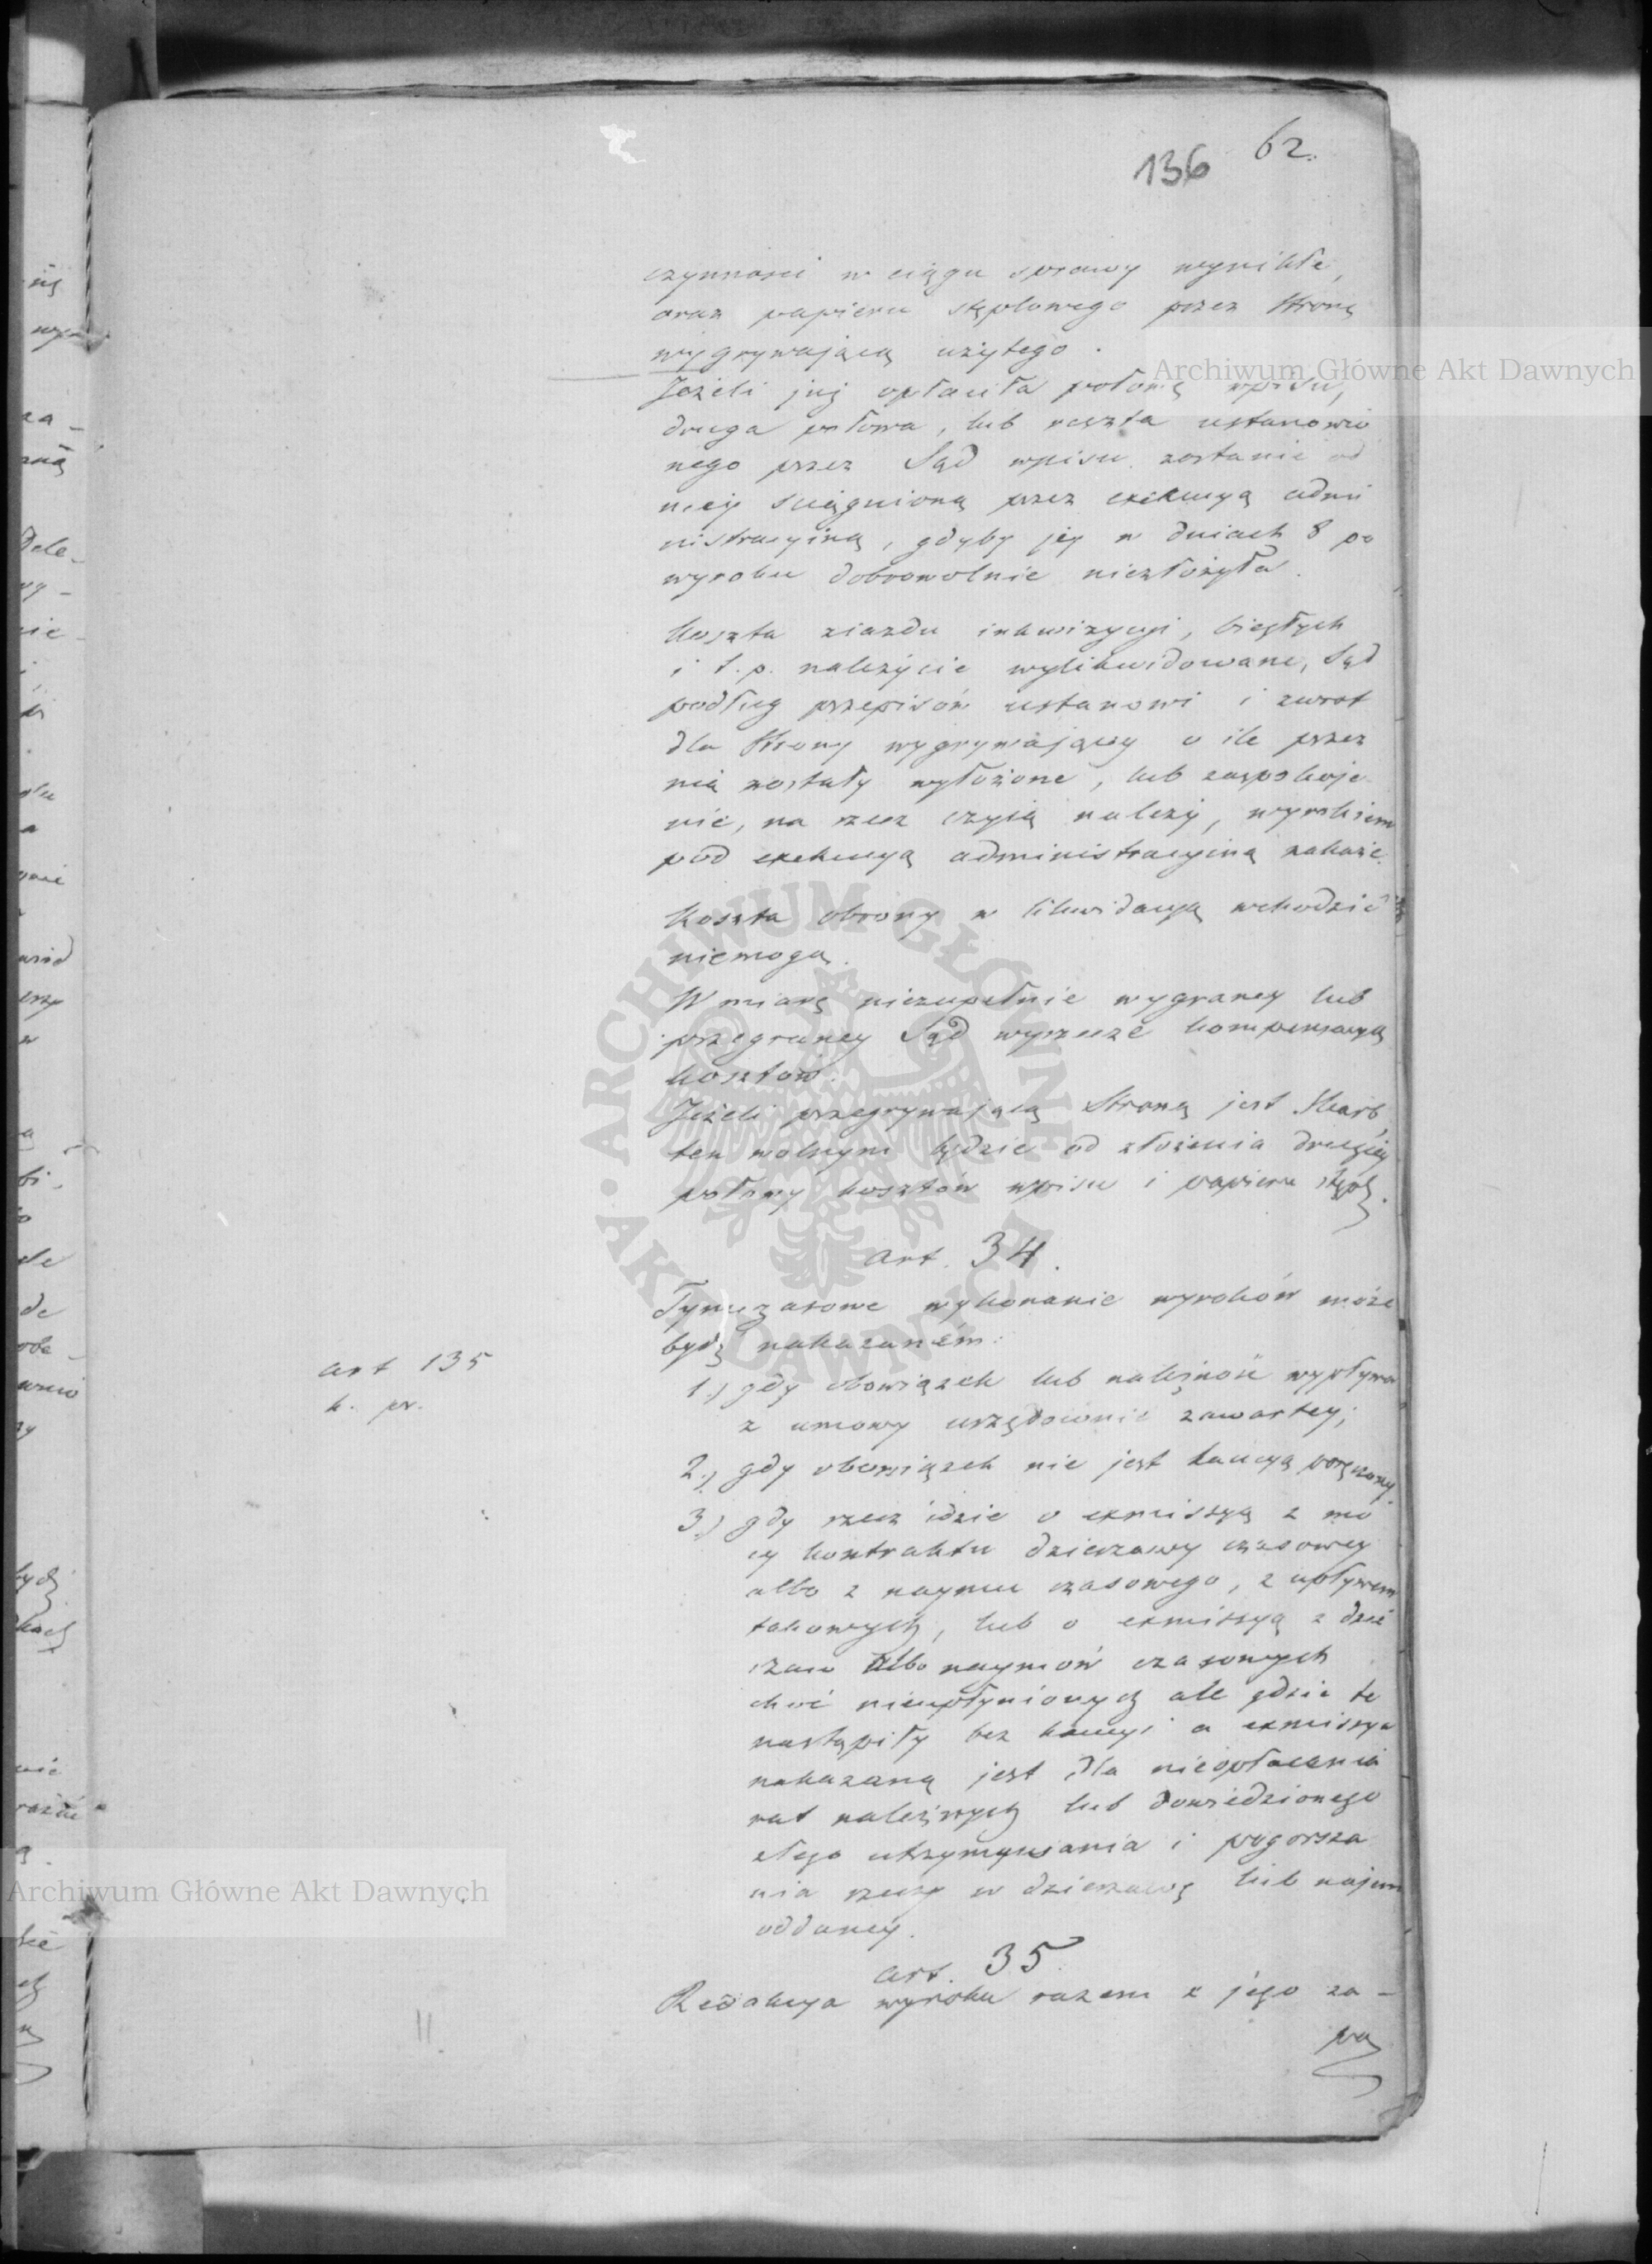 136 62.
czynności w ciągu sprawy wynikłe,
oraz papieru stęplowego przez Stronę
wygrywającą użytego.
Jeżeli już opłaciła połowę wpisu,
druga połowa, lub reszta ustanowio
nego przez Sąd wpisu zostanie od
niey ściągnioną przez exekucyą admi
nistracyiną, gdyby jey w dniach 8 po
wyroku dobrowolnie niezłożyła.
Koszta ziazdu inkwizycyi, biegłych
i t. p. należycie wylikwidowane, Sąd
podług przepisów ustanowi i zwrot
dla Strony wygrywającey o ile przez
nią zostały wyłożone, lub zaspokoje
nie, na rzecz czyią należy, wyrokiem
pod exekucyą administracyiną nakaże.
Koszta obrony w likwidacyą wchodzić
niemogą.
W miarę niezupełnie wygraney lub
przegraney Sąd wyrzecze kompensacyą
kosztów.
Jeżeli przegrywającą Stroną jest Skarb,
ten wolnym będzie od złożenia drugiéy
połowy kosztów wpisu i papieru stępl.
art. 34.
Tymczasowe wykonanie wyroków może
bydź nakazaném:
art 135
k. pr.
1.) gdy obowiązek lub należność wypływa
z umowy urzędownie zawartey;
2.) gdy obowiązek nie jest kaucyą poręczony
3.) gdy rzecz idzie o exmissyą z mo
cy kontraktu dzierzawy czasowey
albo z naymu czasowego, z upływem
takowych, lub o exmissyą z dzier
zaw albo naymów czasowych
choć nieupłynionych ale gdzie te
nastąpiły bez kaucyi a exmissya
nakazaną jest dla nieopłacenia
rat należnych lub dowiedzionego
złego utrzymywania i pogorsza
nia rzeczy w dzierzawę lub najem
oddanéy.
art. 35.
Redakcya wyroku razem z jego za-
Archiwum Główne Akt Dawnych
Archiwum Główne Akt Dawnych
ARCHIWUM GŁÓWNE AKT DAWNYCH